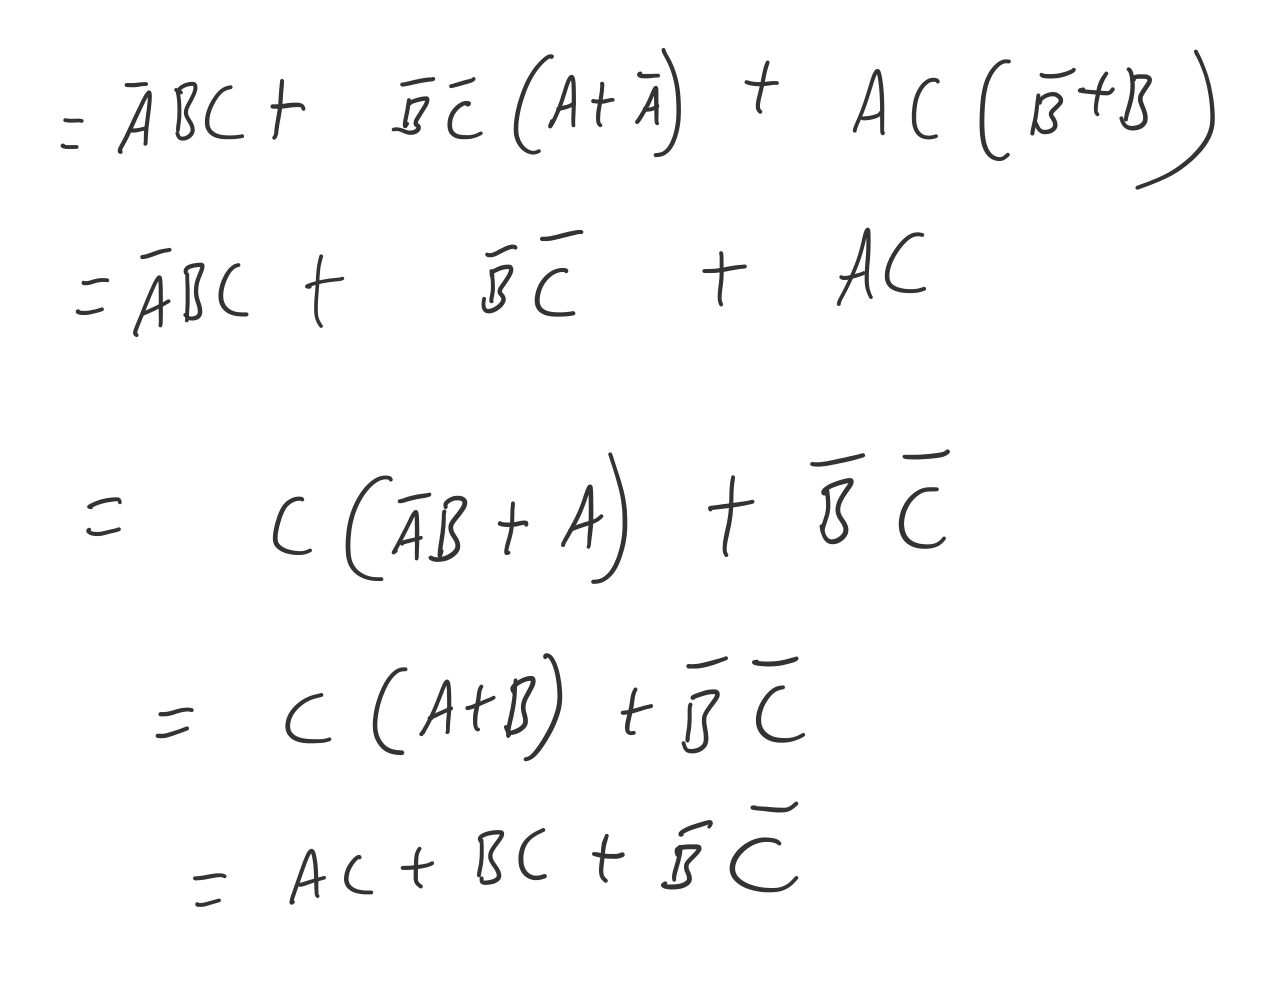 = A̅BC + B̅ C̅ (A + A̅) + AC (B̅ + B)
= A̅BC + B̅ C̅ + AC
= C (A̅B + A) + B̅ C̅
= C (A+B) + B̅ C̅
= AC + BC + B̅ C̅